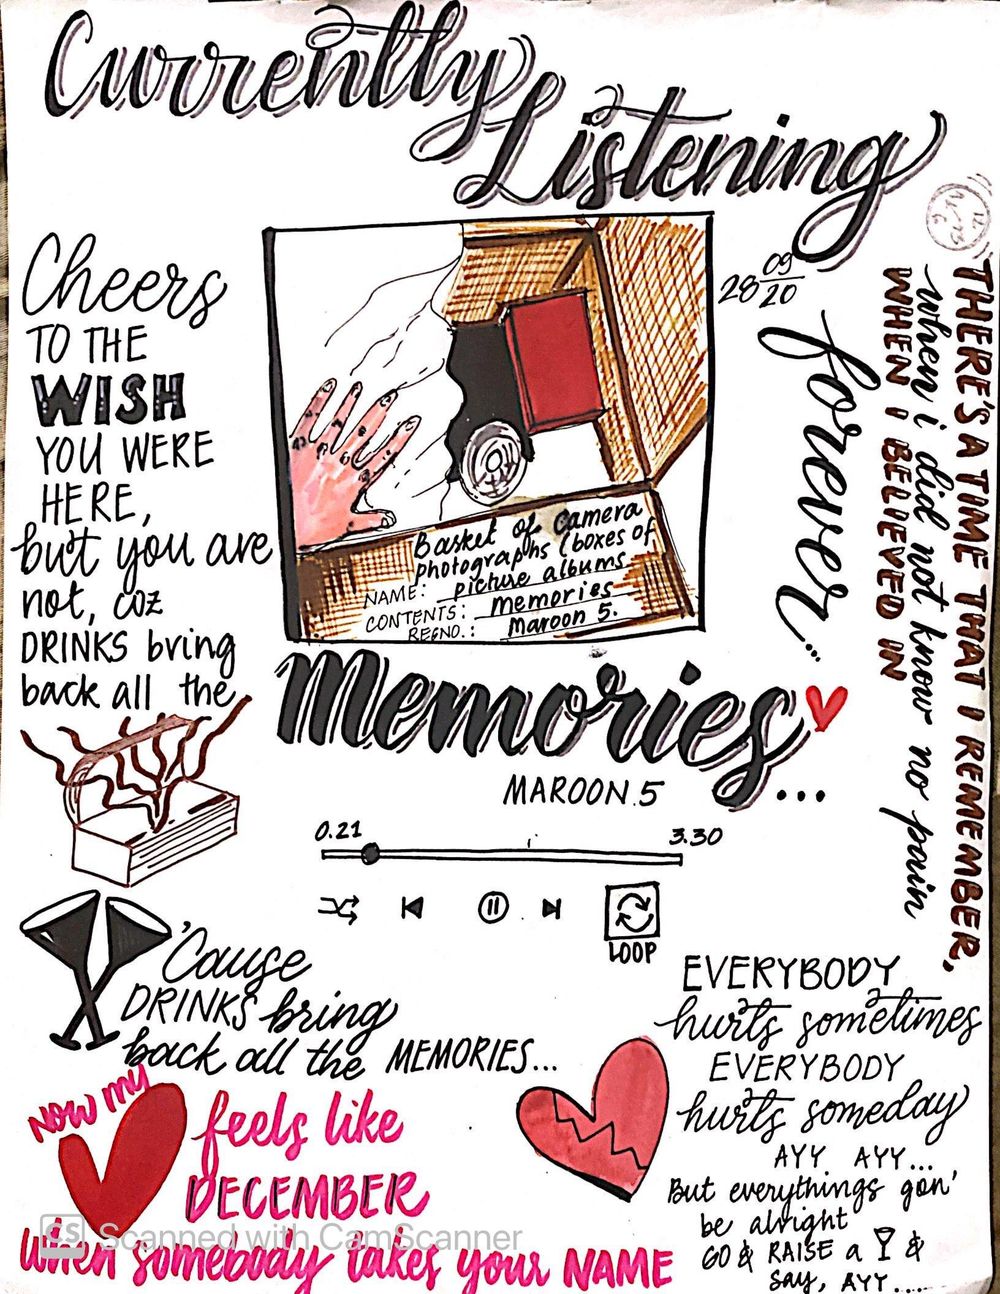 Currently
Listening
28 09/20
Cheers
TO THE
WISH
YOU WERE
HERE,
but you are
not, coz
DRINKS bring
back all the
Basket of camera
photographs (boxes of
NAME: picture albums
CONTENTS: memories
REGNO.: Maroon 5.
Memories...
MAROON.5
forever...
THERE'S A TIME THAT I REMEMBER,
when i did not know no pain
WHEN I BELIEVED IN
0.21
3.30
LOOP
'Cause
DRINKS bring
back all the MEMORIES...
NOW my
feels like
DECEMBER
When somebody takes your NAME
EVERYBODY
hurts sometimes
EVERYBODY
hurts someday
AYY AYY...
But everythings gon'
be alright
GO & RAISE a &
say, AYY....
CS Scanned with CamScanner